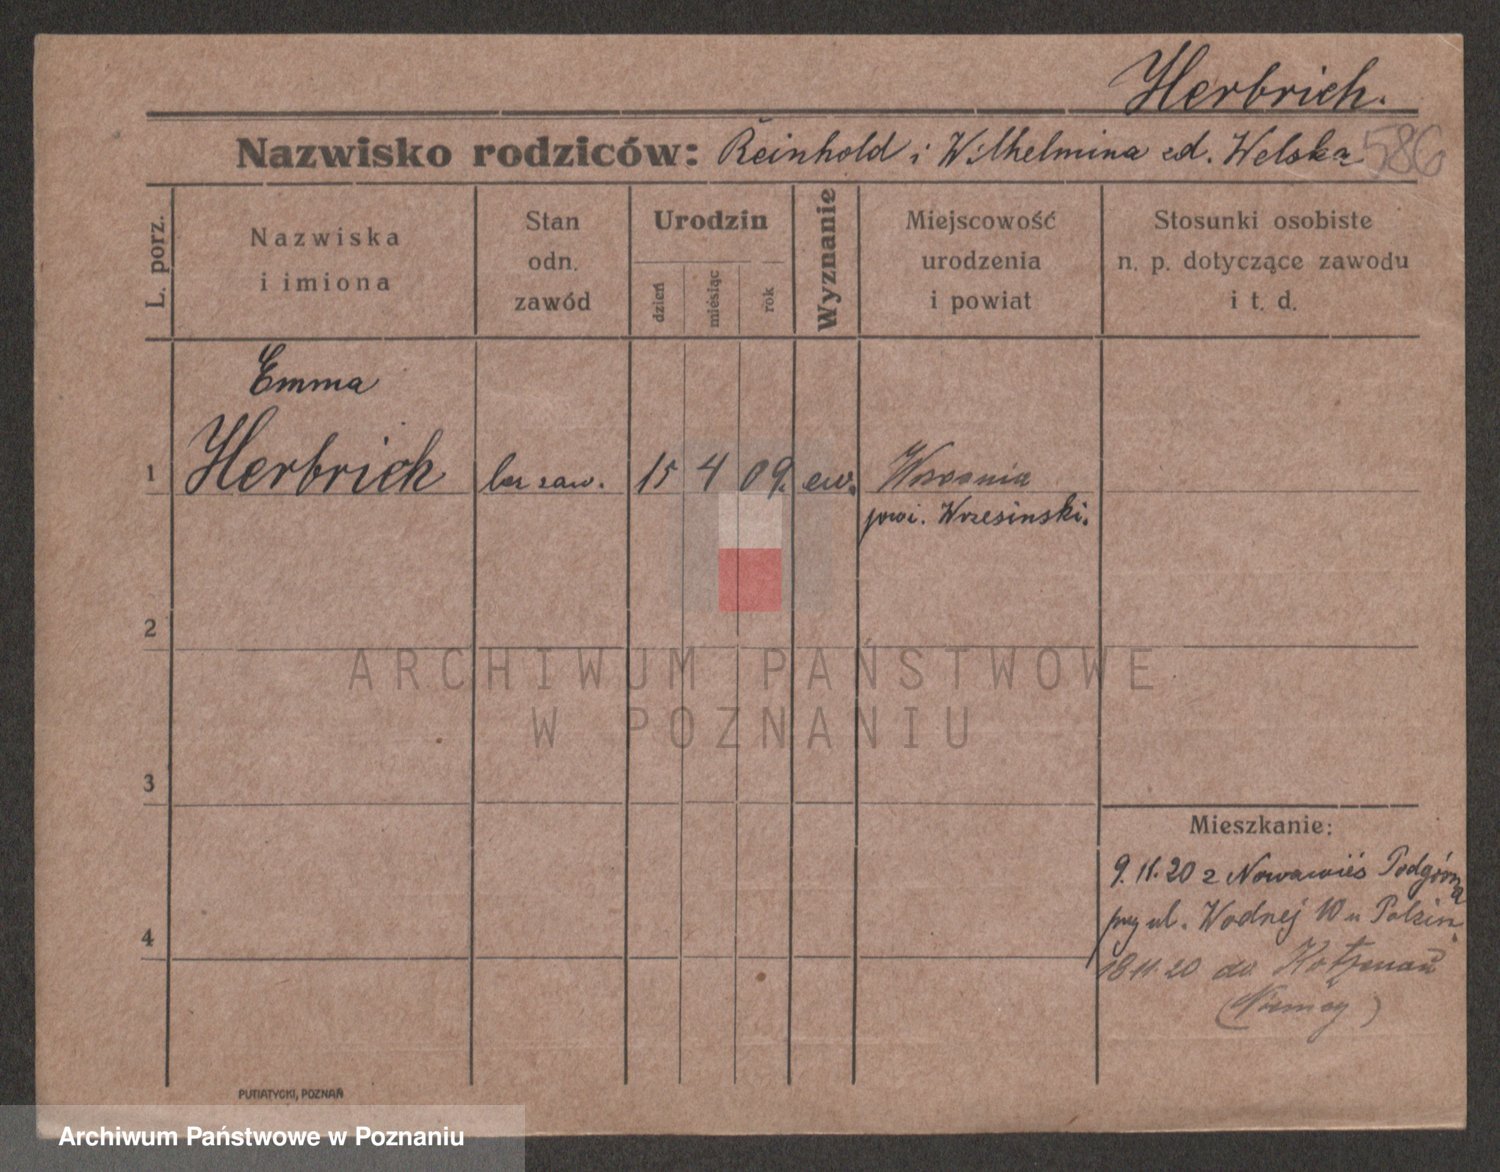 Herbrich.
Nazwisko rodziców: Reinhold i Wilhelmina zd. Welska 586
L. porz.
Nazwiska i imiona
Stan odn. zawód
Urodzin
dzień
miesiąc
rok
Wyznanie
Miejscowość urodzenia i powiat
Stosunki osobiste n. p. dotyczące zawodu i t. d.
Emma
1 Herbrich bez zaw. 15 4 09. ew.
powi. Wrzesinski.
2
ARCHIWUM PAŃSTWOWE
W POZNANIU
3
Mieszkanie:
9.11.20 z Nowawiés Podgórna
przy ul. Wodnej 10 u
4
18.11.20 do
(Niemcy)
PUTIATYCKI, POZNAŃ
Archiwum Państwowe w Poznaniu